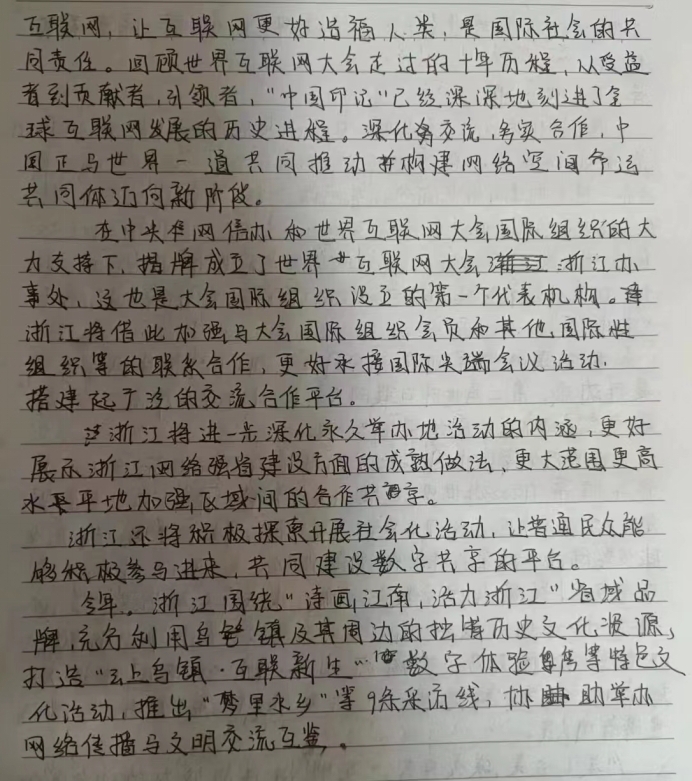 互联网，让互联网更好造福人类，是国际社会的共
同责任。回顾世界互联网大会走过的十年历程，从受益
者到贡献者，引领者，“中国印记”已经深深地刻进了全
球互联网发展的历史进程。深化交流，务实合作，中
国正与世界一道共同推动并构建网络空间命运
共同体迈向新阶段。
在中央网信办和世界互联网大会国际组织的大
力支持下，揭牌成立了世界互联网大会浙江办
事处，这也是大会国际组织设立的第一个代表机构。
浙江将借此加强与大会国际组织会员和其他国际性
组织等的联系合作，更好承接国际尖端会议活动，
搭建起广泛的交流合作平台。
浙江将进一步深化永久举办地活动的内涵，更好
展示浙江网络强省建设方面的成熟做法，更大范围更高
水平地加强区域间的合作共享。
浙江还将积极探索开展社会化活动，让普通民众能
够积极参与进来，共同建设数字共享的平台。
今年。浙江围绕“诗画江南，活力浙江”省域品
牌，充分利用乌镇及其周边的独特历史文化资源，
打造“云上乌镇·互联新生”数字体验等特色文
化活动，推出“梦里水乡”等9条采访线，协助举办
网络传播与文明交流互鉴。